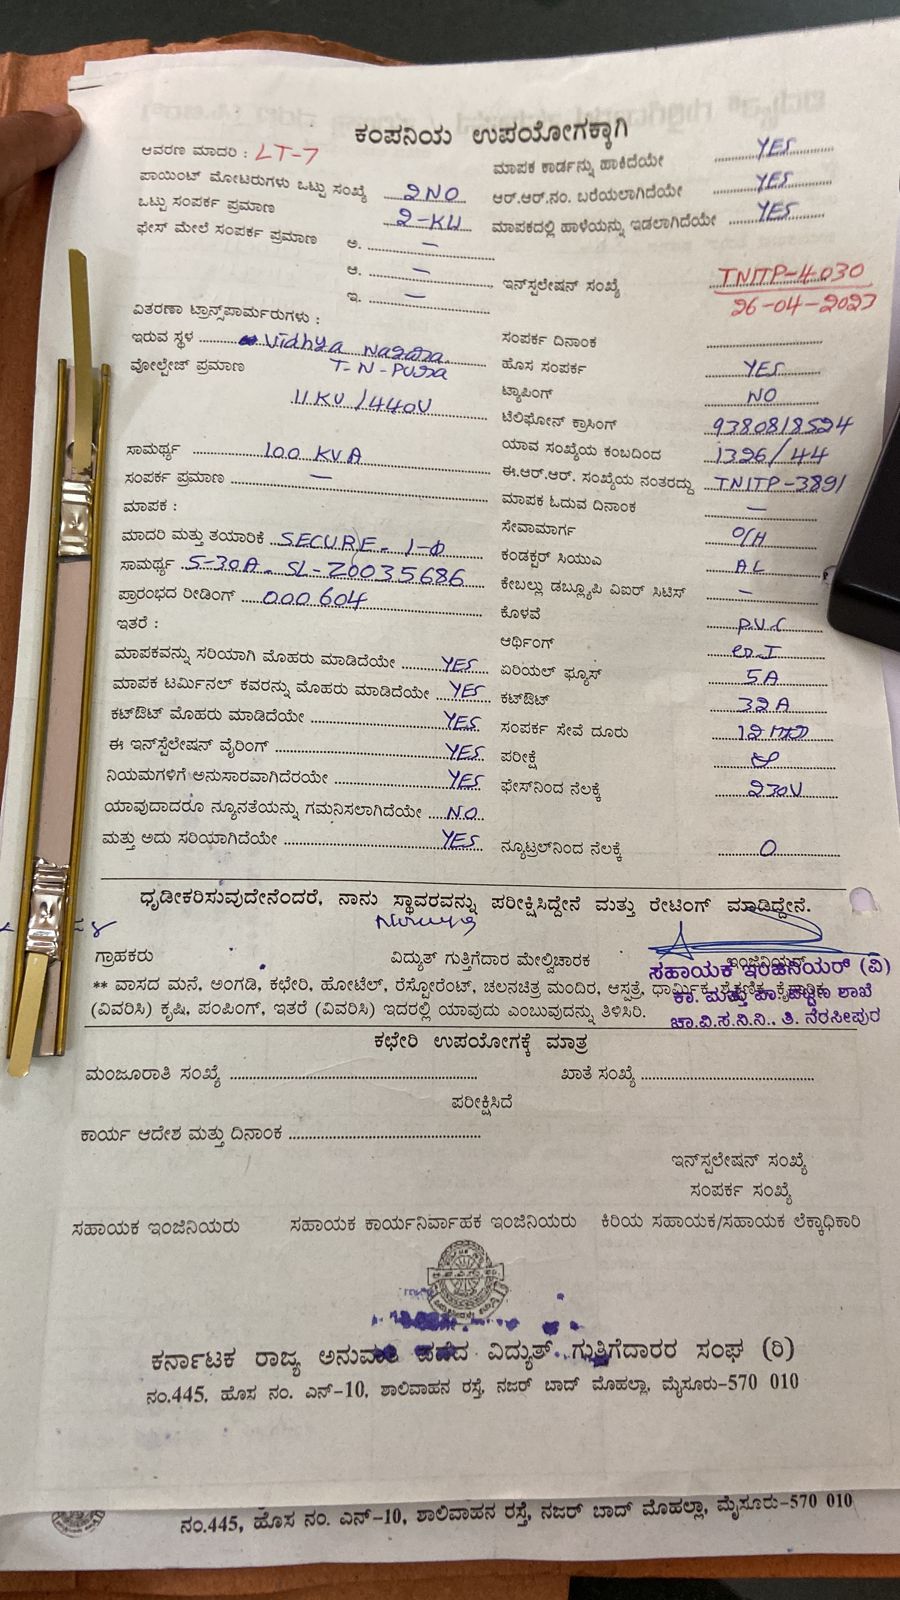 ಕಂಪನಿಯ ಉಪಯೋಗಕ್ಕಾಗಿ
ಆವರಣ ಮಾದರಿ : LT-7
ಪಾಯಿಂಟ್ ಮೋಟರುಗಳು ಒಟ್ಟು ಸಂಖ್ಯೆ 2NO
ಒಟ್ಟು ಸಂಪರ್ಕ ಪ್ರಮಾಣ 2-KW
ಫೇಸ್ ಮೇಲೆ ಸಂಪರ್ಕ ಪ್ರಮಾಣ ಅ. —
ಆ. —
ಇ. —
ವಿತರಣಾ ಟ್ರಾನ್ಸ್‌ಪಾರ್ಮರುಗಳು :
ಇರುವ ಸ್ಥಳ Vidhya Nagara
T-N-Pura
ವೋಲ್ಟೇಜ್ ಪ್ರಮಾಣ
11KV/440V
ಸಾಮರ್ಥ್ಯ 100 KVA
ಸಂಪರ್ಕ ಪ್ರಮಾಣ —
ಮಾಪಕ :
ಮಾದರಿ ಮತ್ತು ತಯಾರಿಕೆ SECURE - 1-Φ
ಸಾಮರ್ಥ್ಯ 5-30A - SL-20035686
ಪ್ರಾರಂಭದ ರೀಡಿಂಗ್ 000604
ಇತರೆ :
ಮಾಪಕವನ್ನು ಸರಿಯಾಗಿ ಮೊಹರು ಮಾಡಿದೆಯೇ YES
ಮಾಪಕ ಟರ್ಮಿನಲ್ ಕವರನ್ನು ಮೊಹರು ಮಾಡಿದೆಯೇ YES
ಕಟ್‌ಔಟ್ ಮೊಹರು ಮಾಡಿದೆಯೇ YES
ಈ ಇನ್‌ಸ್ಟಲೇಷನ್ ವೈರಿಂಗ್ YES
ನಿಯಮಗಳಿಗೆ ಅನುಸಾರವಾಗಿದೆರಯೇ YES
ಯಾವುದಾದರೂ ನ್ಯೂನತೆಯನ್ನು ಗಮನಿಸಲಾಗಿದೆಯೇ NO
ಮತ್ತು ಅದು ಸರಿಯಾಗಿದೆಯೇ YES
ಮಾಪಕ ಕಾರ್ಡನ್ನು ಹಾಕಿದೆಯೇ YES
ಆರ್.ಆರ್.ನಂ. ಬರೆಯಲಾಗಿದೆಯೇ YES
ಮಾಪಕದಲ್ಲಿ ಹಾಳೆಯನ್ನು ಇಡಲಾಗಿದೆಯೇ YES
ಇನ್‌ಸ್ಟಲೇಷನ್ ಸಂಖ್ಯೆ TNITP-4030
26-04-2023
ಸಂಪರ್ಕ ದಿನಾಂಕ
ಹೊಸ ಸಂಪರ್ಕ YES
ಟ್ಯಾಪಿಂಗ್ NO
ಟೆಲಿಫೋನ್ ಕ್ರಾಸಿಂಗ್ 9380818524
ಯಾವ ಸಂಖ್ಯೆಯ ಕಂಬದಿಂದ 1326/44
ಈ.ಆರ್.ಆರ್. ಸಂಖ್ಯೆಯ ನಂತರದ್ದು TNITP-3891
ಮಾಪಕ ಓದುವ ದಿನಾಂಕ —
ಸೇವಾಮಾರ್ಗ O/H
ಕಂಡಕ್ಟರ್ ಸಿಯುಎ AL
ಕೇಬಲ್ಲು ಡಬ್ಲ್ಯೂಪಿ ವಿಐಆರ್ ಸಿಟಿಸ್ —
ಕೊಳವೆ P.V.C
ಆರ್ಥಿಂಗ್
ಏರಿಯಲ್ ಫ್ಯೂಸ್ 5A
ಕಟ್‌ಔಟ್ 32A
ಸಂಪರ್ಕ ಸೇವೆ ದೂರು
ಪರೀಕ್ಷೆ
ಫೇಸ್‌ನಿಂದ ನೆಲಕ್ಕೆ 230V
ನ್ಯೂಟ್ರಲ್‌ನಿಂದ ನೆಲಕ್ಕೆ 0
ಧೃಡೀಕರಿಸುವುದೇನೆಂದರೆ, ನಾನು ಸ್ಥಾವರವನ್ನು ಪರೀಕ್ಷಿಸಿದ್ದೇನೆ ಮತ್ತು ರೇಟಿಂಗ್ ಮಾಡಿದ್ದೇನೆ.
ಗ್ರಾಹಕರು ವಿದ್ಯುತ್ ಗುತ್ತಿಗೆದಾರ ಮೇಲ್ವಿಚಾರಕ ಇಂಜಿನಿಯರ್
ಸಹಾಯಕ ಇಂಜಿನಿಯರ್ (ವಿ)
ಕಾ. ಮತ್ತು ಪಾ. ಪಟ್ಟಣ ಶಾಖೆ
ಚಾ.ವಿ.ಸ.ನಿ.ನಿ., ತಿ. ನರಸೀಪುರ
** ವಾಸದ ಮನೆ, ಅಂಗಡಿ, ಕಛೇರಿ, ಹೋಟೆಲ್, ರೆಸ್ಟೋರೆಂಟ್, ಚಲನಚಿತ್ರ ಮಂದಿರ, ಆಸ್ಪತ್ರೆ, ಧಾರ್ಮಿಕ, ಶೈಕ್ಷಣಿಕ, ಕೈಗಾರಿಕ
(ವಿವರಿಸಿ) ಕೃಷಿ, ಪಂಪಿಂಗ್, ಇತರೆ (ವಿವರಿಸಿ) ಇದರಲ್ಲಿ ಯಾವುದು ಎಂಬುವುದನ್ನು ತಿಳಿಸಿರಿ.
ಕಛೇರಿ ಉಪಯೋಗಕ್ಕೆ ಮಾತ್ರ
ಮಂಜೂರಾತಿ ಸಂಖ್ಯೆ ಖಾತೆ ಸಂಖ್ಯೆ
ಪರೀಕ್ಷಿಸಿದೆ
ಕಾರ್ಯ ಆದೇಶ ಮತ್ತು ದಿನಾಂಕ
ಇನ್‌ಸ್ಟಲೇಷನ್ ಸಂಖ್ಯೆ
ಸಂಪರ್ಕ ಸಂಖ್ಯೆ
ಸಹಾಯಕ ಇಂಜಿನಿಯರು ಸಹಾಯಕ ಕಾರ್ಯನಿರ್ವಾಹಕ ಇಂಜಿನಿಯರು ಕಿರಿಯ ಸಹಾಯಕ/ಸಹಾಯಕ ಲೆಕ್ಕಾಧಿಕಾರಿ
ಕರ್ನಾಟಕ ರಾಜ್ಯ ಅನುಮತಿ ಪಡೆದ ವಿದ್ಯುತ್ ಗುತ್ತಿಗೆದಾರರ ಸಂಘ (ರಿ)
ನಂ.445, ಹೊಸ ನಂ. ಎನ್-10, ಶಾಲಿವಾಹನ ರಸ್ತೆ, ನಜರ್ ಬಾದ್ ಮೊಹಲ್ಲಾ, ಮೈಸೂರು-570 010
ನಂ.445, ಹೊಸ ನಂ. ಎನ್-10, ಶಾಲಿವಾಹನ ರಸ್ತೆ, ನಜರ್ ಬಾದ್ ಮೊಹಲ್ಲಾ, ಮೈಸೂರು-570 010